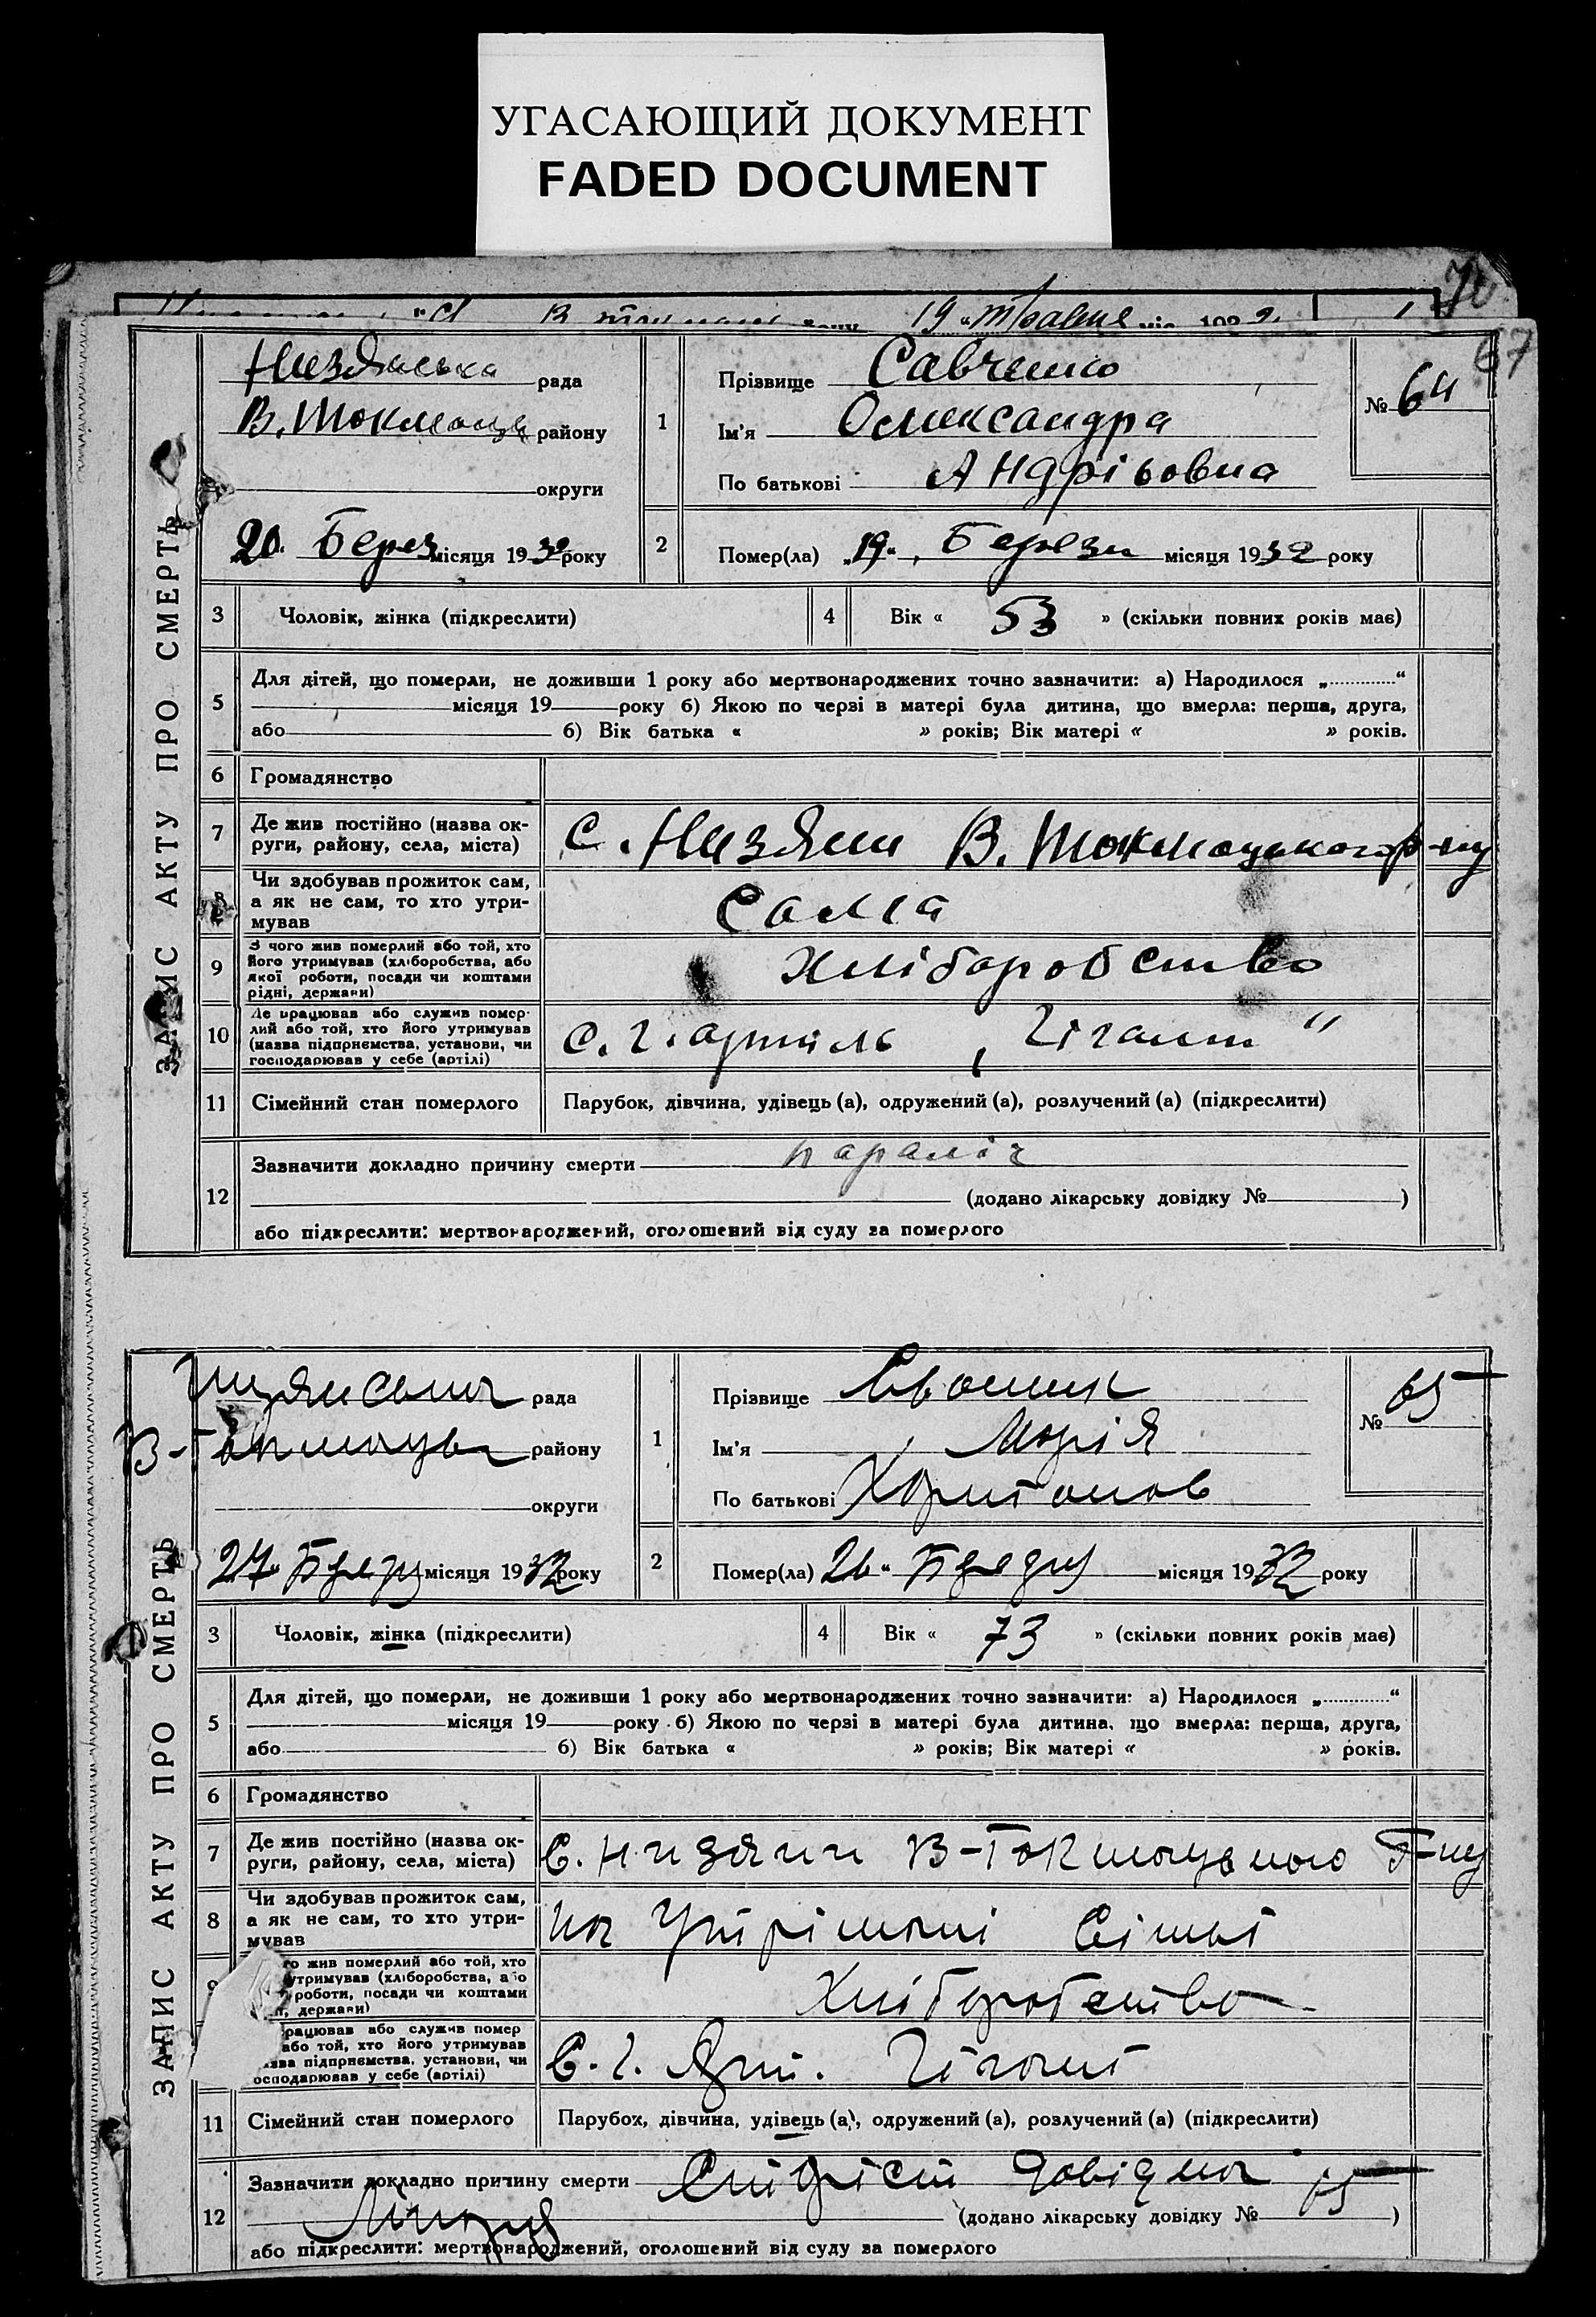 УГАСАЮЩИЙ ДОКУМЕНТ
FADED DOCUMENT
70
19 „Травня міс. 193 2
67
ЗАПИС АКТУ ПРО СМЕРТЬ
Низянська рада
В. Токмацьк району
округи
20 Берез місяця 1932 року
1
Прізвище Савченко
Ім'я Олександра
По батькові Андрієовна
№ 64
2
Помер(ла) „19" Березн місяця 1932 року
3 Чоловік, жінка (підкреслити)
4 Вік « 53 » (скільки повних років має)
5 Для дітей, що померли, не доживши 1 року або мертвонароджених точно зазначити: а) Народилося „.............“
місяця 19 року б) Якою по черзі в матері була дитина, що вмерла: перша, друга,
або б) Вік батька « » років; Вік матері « » років.
6 Громадянство
7 Де жив постійно (назва округи, району, села, міста) С. Низяни В. Токмацького р-ну
8 Чи здобував прожиток сам, а як не сам, то хто утримував Сама
9 З чого жив померлий або той, хто його утримував (хліборобства, або якої роботи, посади чи коштами рідні, держави) Хліборобство
10 Де працював або служив помер- лий або той, хто його утримував (назва підприємства, установи, чи господарював у себе (артілі) С. г. артіль „Гігант"
11 Сімейний стан померлого Парубок, дівчина, удівець (а), одружений (а), розлучений (а) (підкреслити)
12 Зазначити докладно причину смерти параліч
(додано лікарську довідку № )
або підкреслити: мертвонароджений, оголошений від суду за померлого
ЗАПИС АКТУ ПРО СМЕРТЬ
рада
В-Токмацьк району
округи
27 місяця 1932 року
1
Прізвище
Ім'я Марія
По батькові Харитонов
№ 65
2
Помер(ла) 26 " місяця 1932 року
3 Чоловік, жінка (підкреслити)
4 Вік « 73 » (скільки повних років має)
5 Для дітей, що померли, не доживши 1 року або мертвонароджених точно зазначити: а) Народилося „.............“
місяця 19 року б) Якою по черзі в матері була дитина, що вмерла: перша, друга,
або б) Вік батька « » років; Вік матері « » років.
6 Громадянство
7 Де жив постійно (назва округи, району, села, міста) С. Низяни В-Токмацького Р-ну
8 Чи здобував прожиток сам, а як не сам, то хто утримував на утрімані Сімьї
го жив померлий або той, хто утримував (хліборобства, або роботи, посади чи коштами держави) Хліборобство
працював або служив помер або той, хто його утримував назва підприємства, установи, чи осподарював у себе (артілі) С. г. Арт. Гігант
11 Сімейний стан померлого Парубок, дівчина, удівець (а), одружений (а), розлучений (а) (підкреслити)
12 Зазначити докладно причину смерти довідка 65
(додано лікарську довідку № )
або підкреслити: мертвонароджений, оголошений від суду за померлого